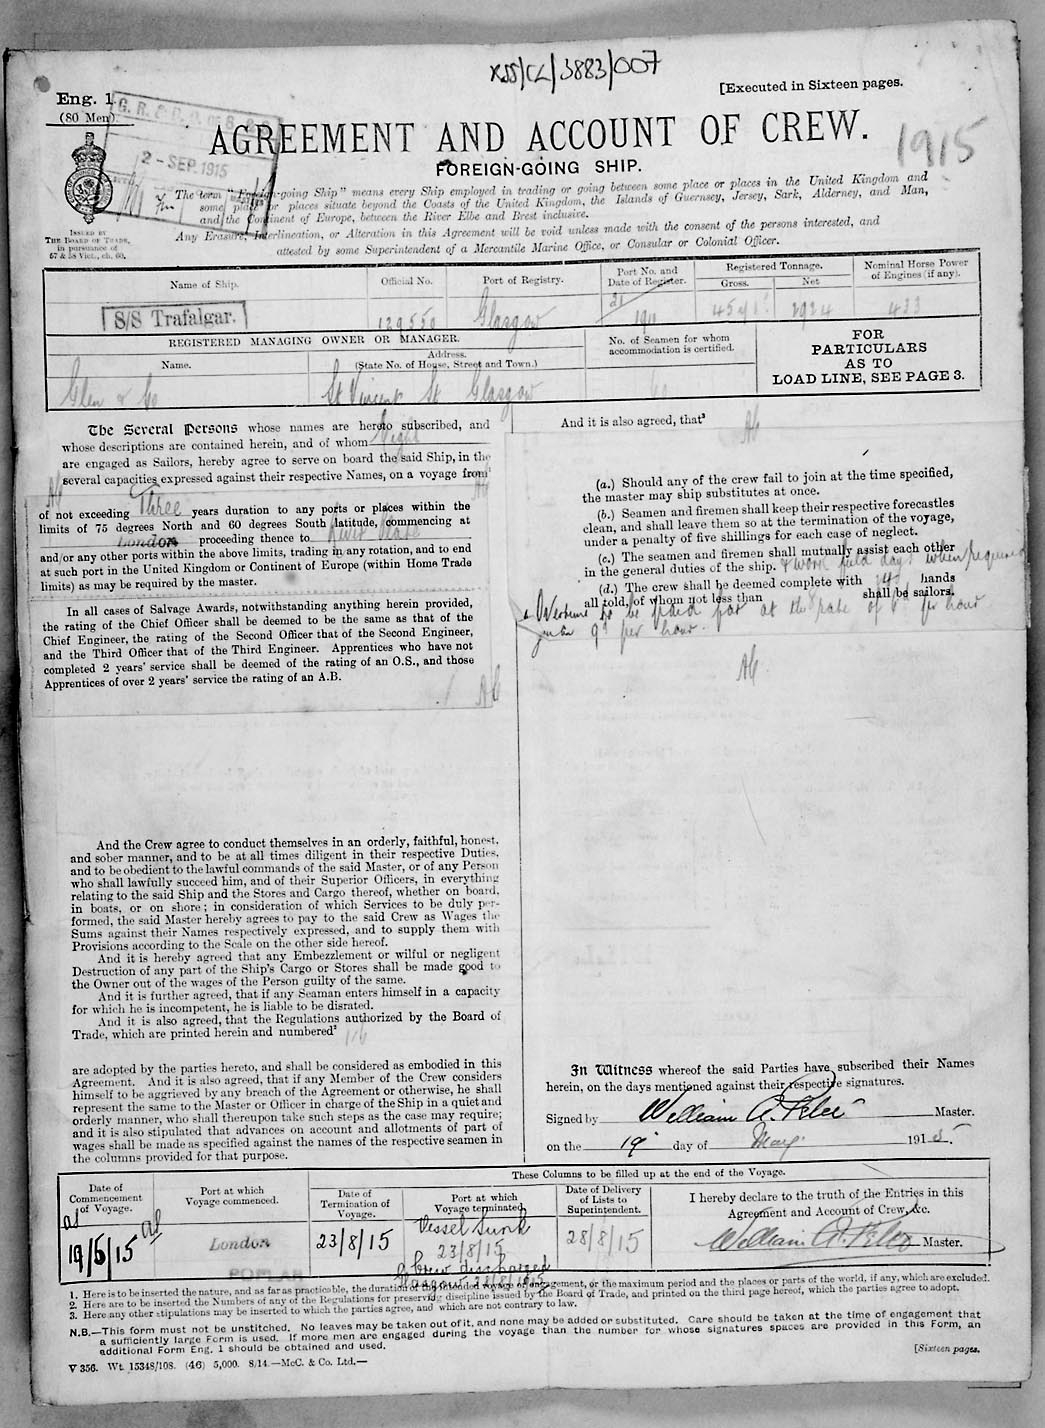 XSS/CL/3883/007
[Executed in Sixteen pages.
Eng. 1
(80 Men)
2 - SEP. 1915
1915
AGREEMENT AND ACCOUNT OF CREW.
FOREIGN-GOING SHIP.
The term "Foreign-going Ship" means every Ship employed in trading or going between some place or places in the United Kingdom and
some place or places situate beyond the Coasts of the United Kingdom, the Islands of Guernsey, Jersey, Sark, Alderney, and Man,
and the Continent of Europe, between the River Elbe and Brest inclusive.
Any Erasure, Interlineation, or Alteration in this Agreement will be void unless made with the consent of the persons interested, and
attested by some Superintendent of a Mercantile Marine Office, or Consular or Colonial Officer.
ISSUED BY
THE BOARD OF TRADE,
in pursuance of
57 & 58 Vict., ch. 60.
Name of Ship. Official No. Port of Registry. Port No. and Date of Register. Registered Tonnage. Gross. Net Nominal Horse Power of Engines (if any).
S/S Trafalgar. 129550 Glasgow 21 1911 2924 433
REGISTERED MANAGING OWNER OR MANAGER.
Name. Address. (State No. of House, Street and Town.)
No. of Seamen for whom accommodation is certified.
FOR
PARTICULARS
AS TO
LOAD LINE, SEE PAGE 3.
Glen & Co St Vincent St Glasgow
The Several Persons whose names are hereto subscribed, and
whose descriptions are contained herein, and of whom
are engaged as Sailors, hereby agree to serve on board the said Ship, in the
several capacities expressed against their respective Names, on a voyage from¹
of not exceeding Three years duration to any ports or places within the
limits of 75 degrees North and 60 degrees South latitude, commencing at
London proceeding thence to River Plate
and/or any other ports within the above limits, trading in any rotation, and to end
at such port in the United Kingdom or Continent of Europe (within Home Trade
limits) as may be required by the master.
In all cases of Salvage Awards, notwithstanding anything herein provided,
the rating of the Chief Officer shall be deemed to be the same as that of the
Chief Engineer, the rating of the Second Officer that of the Second Engineer,
and the Third Officer that of the Third Engineer. Apprentices who have not
completed 2 years' service shall be deemed of the rating of an O.S., and those
Apprentices of over 2 years' service the rating of an A.B.
And the Crew agree to conduct themselves in an orderly, faithful, honest,
and sober manner, and to be at all times diligent in their respective Duties,
and to be obedient to the lawful commands of the said Master, or of any Person
who shall lawfully succeed him, and of their Superior Officers, in everything
relating to the said Ship and the Stores and Cargo thereof, whether on board,
in boats, or on shore; in consideration of which Services to be duly per-
formed, the said Master hereby agrees to pay to the said Crew as Wages the
Sums against their Names respectively expressed, and to supply them with
Provisions according to the Scale on the other side hereof.
And it is hereby agreed that any Embezzlement or wilful or negligent
Destruction of any part of the Ship's Cargo or Stores shall be made good to
the Owner out of the wages of the Person guilty of the same.
And it is further agreed, that if any Seaman enters himself in a capacity
for which he is incompetent, he is liable to be disrated.
And it is also agreed, that the Regulations authorized by the Board of
Trade, which are printed herein and numbered²
are adopted by the parties hereto, and shall be considered as embodied in this
Agreement. And it is also agreed, that if any Member of the Crew considers
himself to be aggrieved by any breach of the Agreement or otherwise, he shall
represent the same to the Master or Officer in charge of the Ship in a quiet and
orderly manner, who shall thereupon take such steps as the case may require;
and it is also stipulated that advances on account and allotments of part of
wages shall be made as specified against the names of the respective seamen in
the columns provided for that purpose.
And it is also agreed, that³
(a.) Should any of the crew fail to join at the time specified,
the master may ship substitutes at once.
(b.) Seamen and firemen shall keep their respective forecastles
clean, and shall leave them so at the termination of the voyage,
under a penalty of five shillings for each case of neglect.
(c.) The seamen and firemen shall mutually assist each other
in the general duties of the ship. & work field days when required
(d.) The crew shall be deemed complete with hands
all told, of whom not less than shall be sailors.
Overtime to be paid for at the rate of 6d per hour
9d per hour.
In Witness whereof the said Parties have subscribed their Names
herein, on the days mentioned against their respective signatures.
Signed by William A. Master.
on the 19 day of May 1915.
These Columns to be filled up at the end of the Voyage.
Date of Commencement of Voyage. Port at which Voyage commenced. Date of Termination of Voyage. Port at which Voyage terminated. Date of Delivery of Lists to Superintendent.
I hereby declare to the truth of the Entries in this
Agreement and Account of Crew, &c.
19/5/15 London 23/8/15 Vessel Sunk 23/8/15 28/8/15
Crew discharged
Glasgow 28/8/15
POPLAR
William A. Master.
1. Here is to be inserted the nature, and as far as practicable, the duration of the intended voyage or engagement, or the maximum period and the places or parts of the world, if any, which are excluded.
2. Here are to be inserted the Numbers of any of the Regulations for preserving discipline issued by the Board of Trade, and printed on the third page hereof, which the parties agree to adopt.
3. Here any other stipulations may be inserted to which the parties agree, and which are not contrary to law.
N.B.—This form must not be unstitched. No leaves may be taken out of it, and none may be added or substituted. Care should be taken at the time of engagement that
a sufficiently large Form is used. If more men are engaged during the voyage than the number for whose signatures spaces are provided in this Form, an
additional Form Eng. 1 should be obtained and used.
[Sixteen pages.
V 356. Wt. 15348/108. (46) 5,000. 8/14.—McC. & Co. Ltd.—